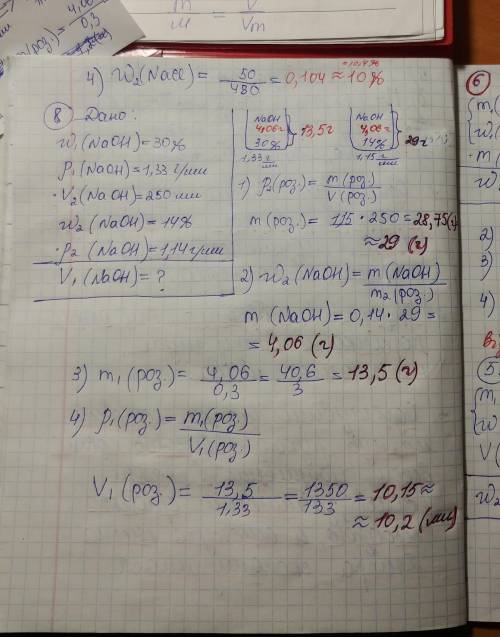 4,06
0,3
(роз.) =
m/M = V/Vm
4) W₂(NaCl) = 50/480 = 0,104 ≈ 10%
≈10,4%
⑧ Дано:
W₁(NaOH) = 30%
ρ₁(NaOH) = 1,33 г/мл
V₂(NaOH) = 250 мл
W₂(NaOH) = 14%
ρ₂(NaOH) = 1,14 г/мл
V₁(NaOH) = ?
NaOH
4,06 г
30%
} 13,5 г
1,33 г/мл
NaOH
4,06 г
14%
} 29 г
1,15 г/мл
1) ρ₂(роз.) = m(роз.)/V(роз.)
m(роз.) = 115 · 250 = 28,75(г)
≈ 29 (г)
2) W₂(NaOH) = m(NaOH)/m₂(роз.)
m(NaOH) = 0,14 · 29 =
= 4,06 (г)
3) m₁(роз.) = 4,06/0,3 = 40,6/3 = 13,5(г)
4) ρ₁(роз.) = m₁(роз.)/V₁(роз.)
V₁(роз.) = 13,5/1,33 = 1350/133 = 10,15 ≈
≈ 10,2 (мл)
⑥
{m₁
{W₁
m
W
2)
3)
4)
⑤
{m₁
{W
V(
W₂